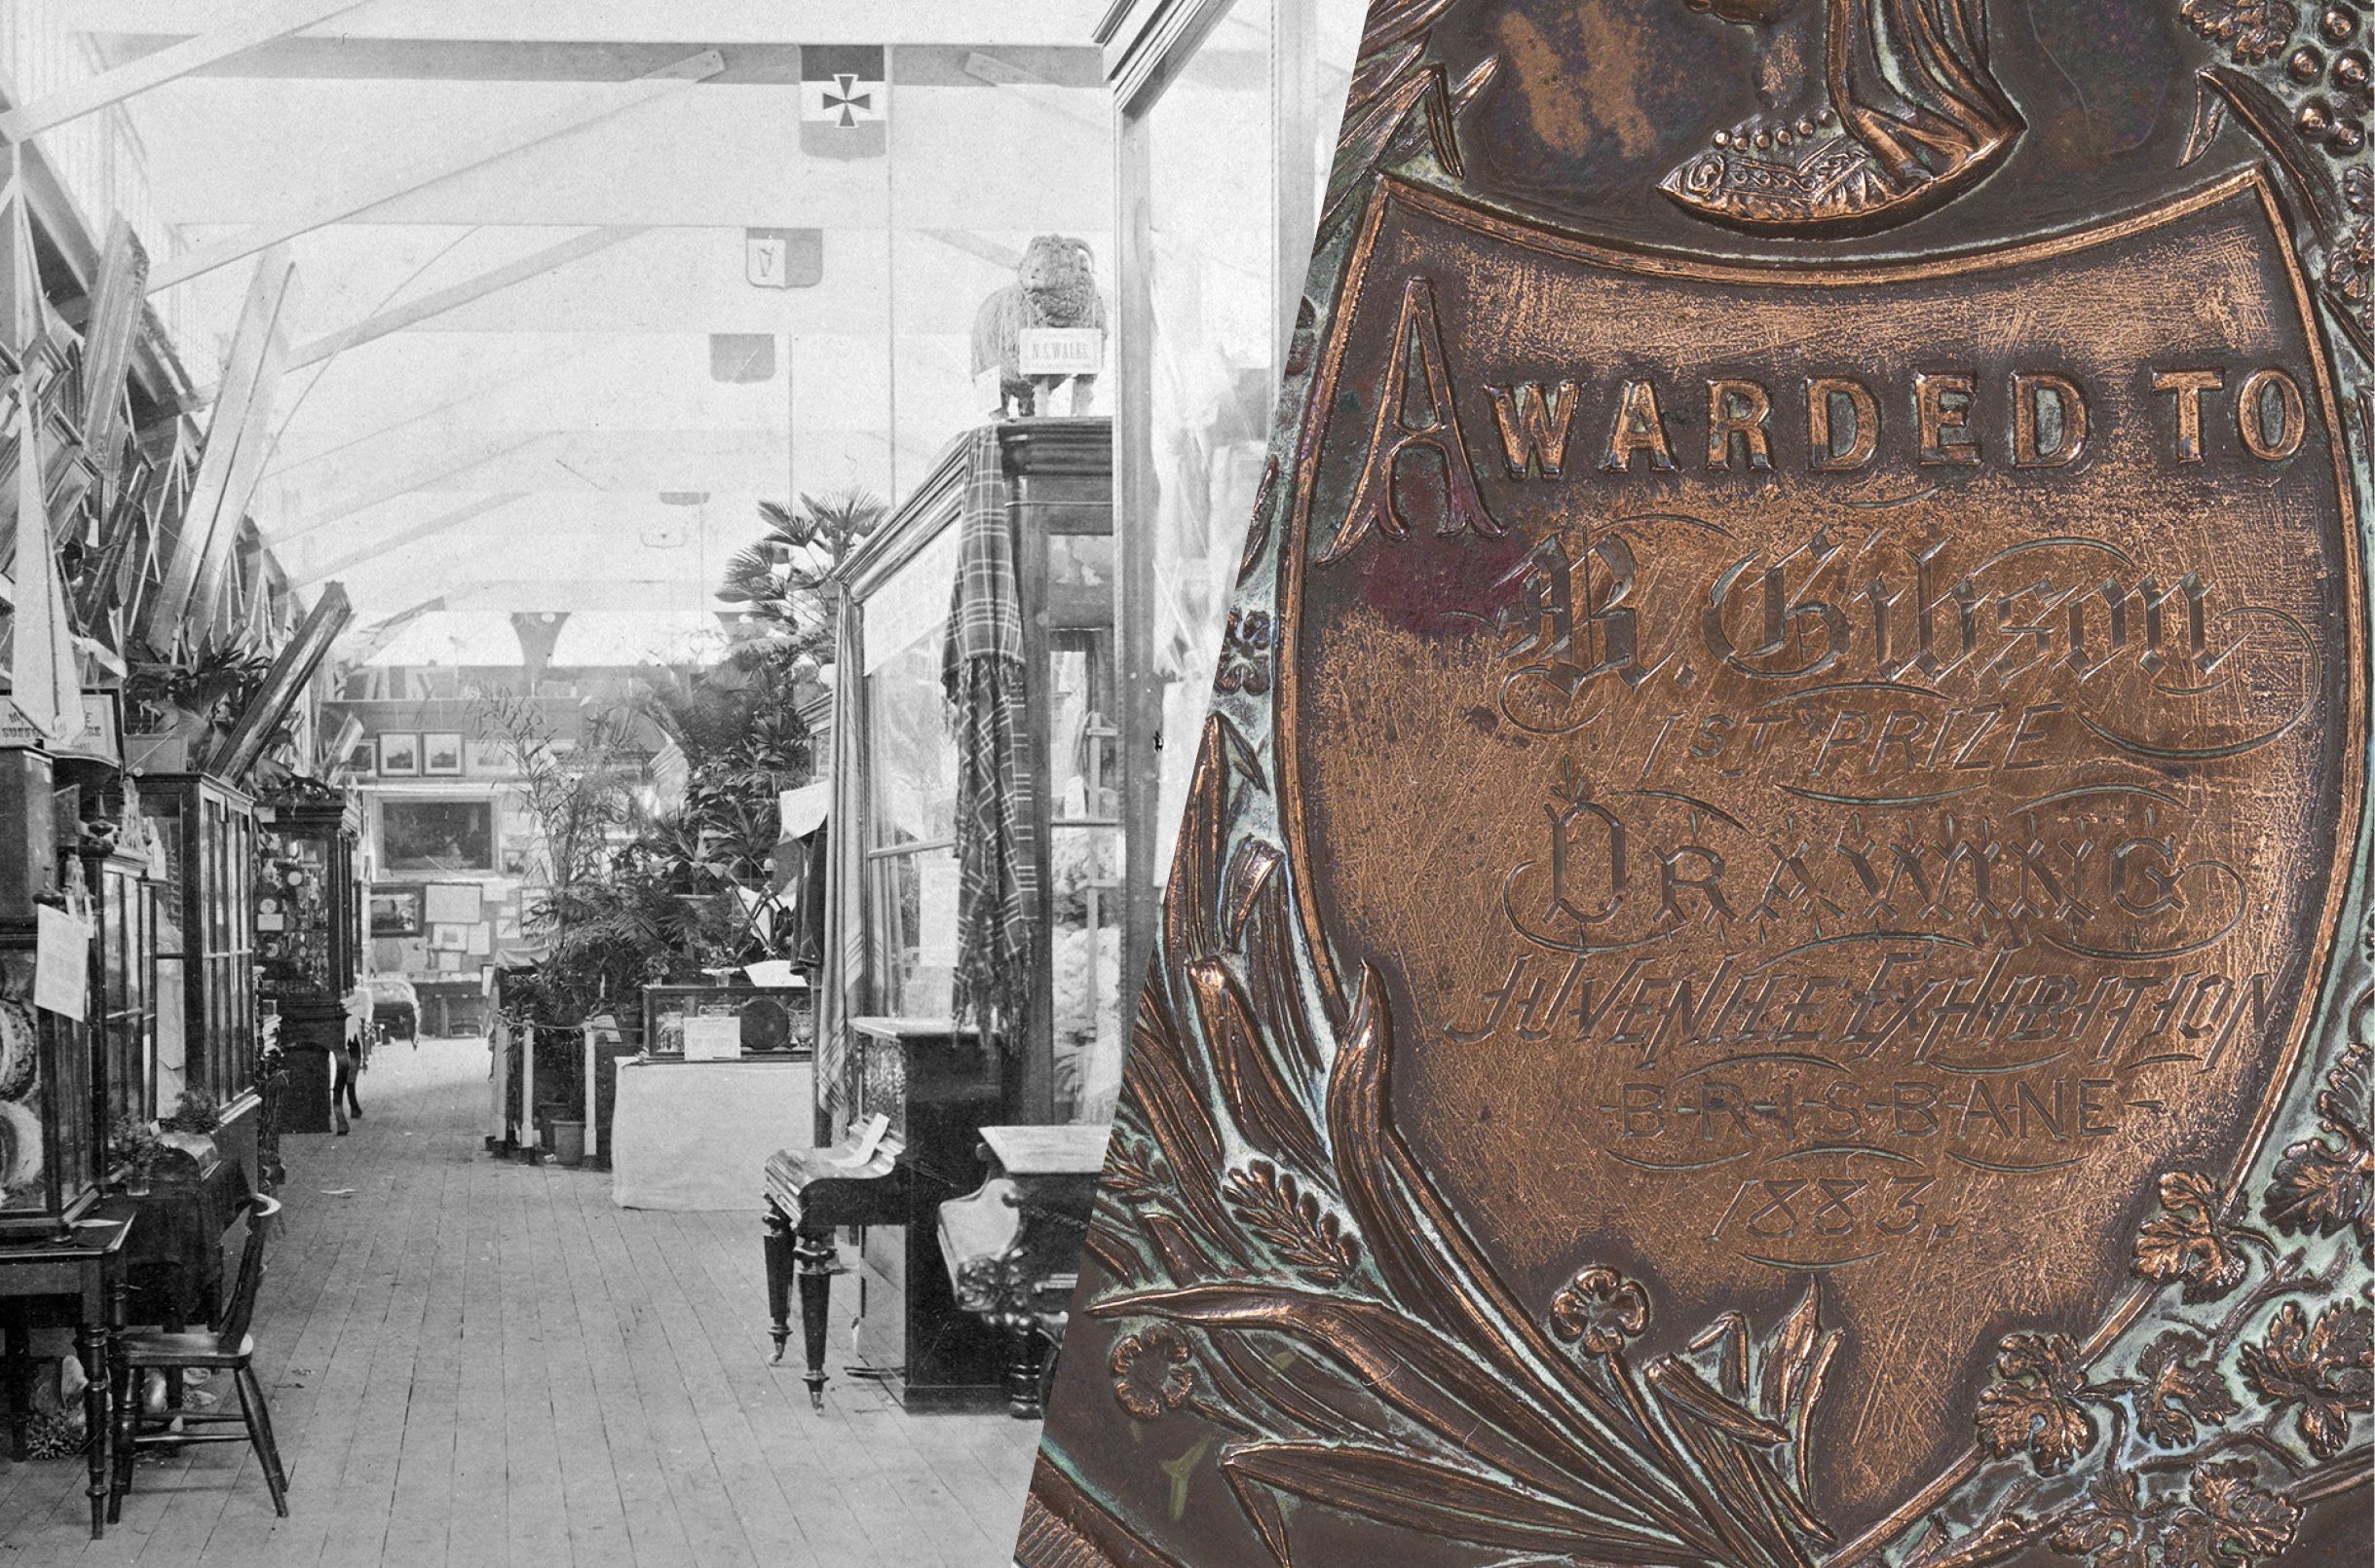 N.S.WALES.
AWARDED TO
R. Gibson
1ST PRIZE
DRAWING
JUVENILE EXHIBITION
BRISBANE
1883.